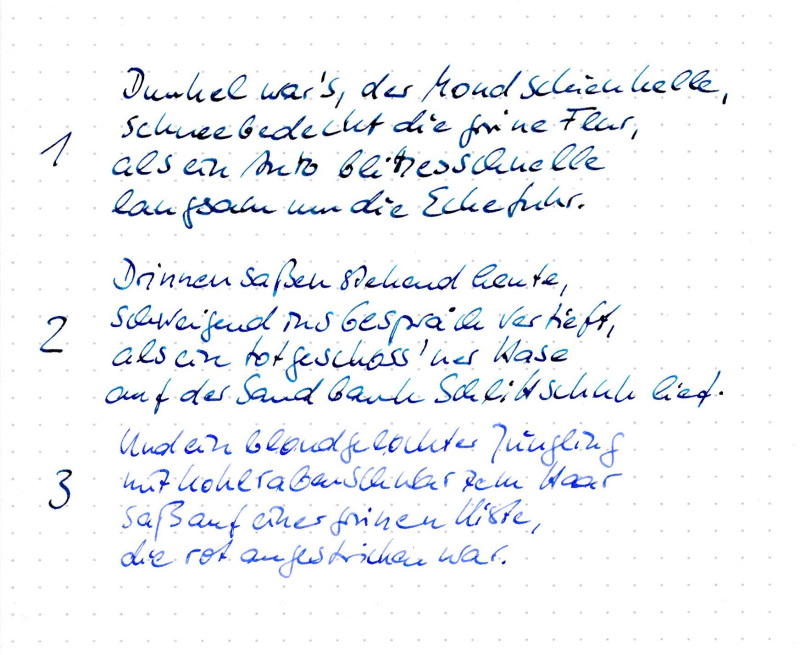 Dunkel war's, der Mond schien helle,
schneebedeckt die grüne Flur,
1
als ein Auto blitzesschnelle
langsam um die Ecke fuhr.
Drinnen saßen stehend Leute,
schweigend ins Gespräch vertieft,
2
als ein totgeschoss'ner Hase
auf der Sandbank Schlittschuh lief.
Und ein blondgelockter Jüngling
mit kohlrabenschwarzem Haar
3
saß auf einer grünen Kiste,
die rot angestrichen war.